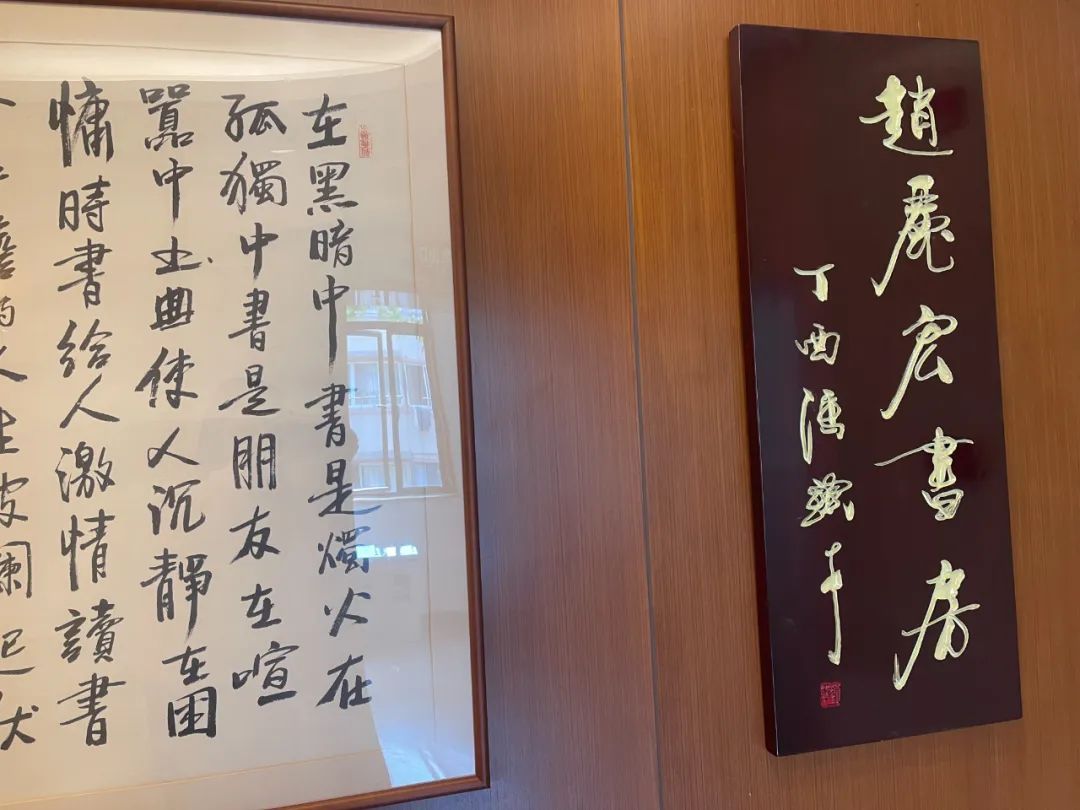 趙麗宏書房
丁酉馮驥才
在黑暗中書是燭火在
孤獨中書是朋友在喧
囂中使人沉靜在困
慵時書給人激情讀書
人生波瀾起伏